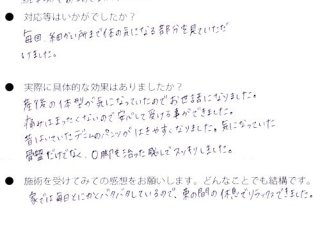 ● 対応等はいかがでしたか？
毎回、細かい所まで体の気になる部分を見ていただ
けました。
● 実際に具体的な効果はありましたか？
産後の体型が気になっていたのでお世話になりました。
痛みはまったくないので安心して受ける事ができました。
昔はいていたデニムのパンツがはきやすくなりました。気になっていた
骨盤だけでなく、O脚も治った感じでスッキリしました。
● 施術を受けてみての感想をお願いします。どんなことでも結構です。
家では毎日とにかくバタバタしているので、束の間の休息でリラックスできました。